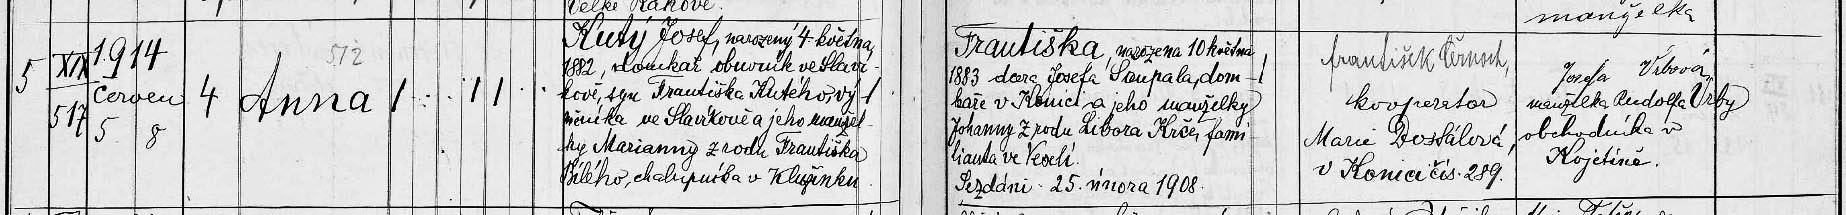 Velké Rakové.
manželka
5
XIX
517
1914
Červen
5 8
4
512
Anna
1
1 1
Kutý Josef, narozený 4. května
1882, domkař obuvník ve Slaví-
kově, syn Františka Kutého, vý-
měníka ve Slavíkově a jeho manžel-
ky Marianny z rodu Františka
Bílého, chalupníka v Klužínku
Františka, narozena 10 května
1883 dcera Josefa Soupala, dom-
kaře v Konici a jeho manželky
Johanny z rodu Libora Krče, fami
lianta ve Veselí.
Sezdáni 25. února 1908.
František Černoch,
kooperator
Marie Dostálová,
v Konici čís. 289.
Josefa Vrbová,
manželka Rudolfa Vrby
obchodníka v
Kojetíně.